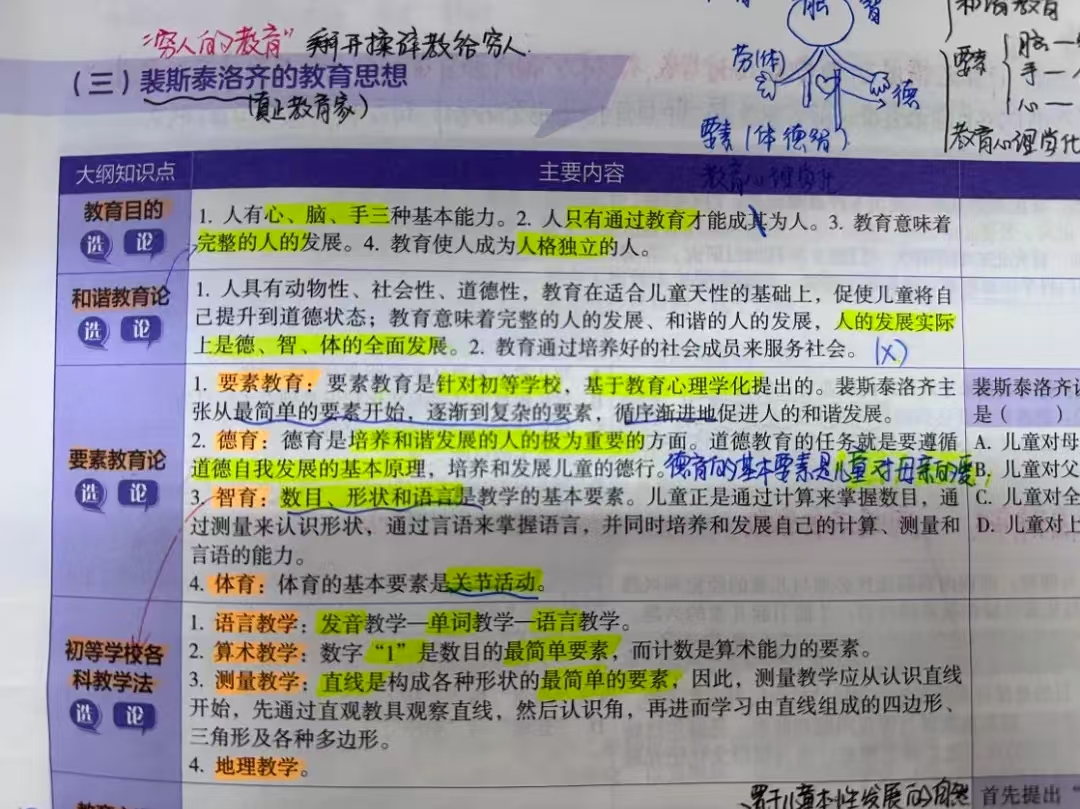 "穷人的教育" 掰开揉碎教给穷人.
(三) 裴斯泰洛齐的教育思想
(真正教育家)
脑
智
劳(体)
德
要素(体德智)
教育心理学化
和谐教育
要素
脑—
手—
心—
教育心理学化
大纲知识点 主要内容
教育目的
选 论
1. 人有心、脑、手三种基本能力。2. 人只有通过教育才能成其为人。3. 教育意味着
完整的人的发展。4. 教育使人成为人格独立的人。
和谐教育论
选 论
1. 人具有动物性、社会性、道德性,教育在适合儿童天性的基础上,促使儿童将自
己提升到道德状态;教育意味着完整的人的发展、和谐的人的发展,人的发展实际
上是德、智、体的全面发展。2. 教育通过培养好的社会成员来服务社会。(x)
要素教育论
选 论
1. 要素教育:要素教育是针对初等学校,基于教育心理学化提出的。裴斯泰洛齐主
张从最简单的要素开始,逐渐到复杂的要素,循序渐进地促进人的和谐发展。
2. 德育:德育是培养和谐发展的人的极为重要的方面。道德教育的任务就是要遵循
道德自我发展的基本原理,培养和发展儿童的德行。德育的基本要素是儿童对母亲的爱
3. 智育:数目、形状和语言是教学的基本要素。儿童正是通过计算来掌握数目,通
过测量来认识形状,通过言语来掌握语言,并同时培养和发展自己的计算、测量和
言语的能力。
4. 体育:体育的基本要素是关节活动。
裴斯泰洛齐
是( )。
A. 儿童对母
B. 儿童对父
C. 儿童对全
D. 儿童对上
初等学校各
科教学法
选 论
1. 语言教学:发音教学—单词教学—语言教学。
2. 算术教学:数字“1”是数目的最简单要素,而计数是算术能力的要素。
3. 测量教学:直线是构成各种形状的最简单的要素,因此,测量教学应从认识直线
开始,先通过直观教具观察直线,然后认识角,再进而学习由直线组成的四边形、
三角形及各种多边形。
4. 地理教学。
于儿童本性发展的自然
首先提出“